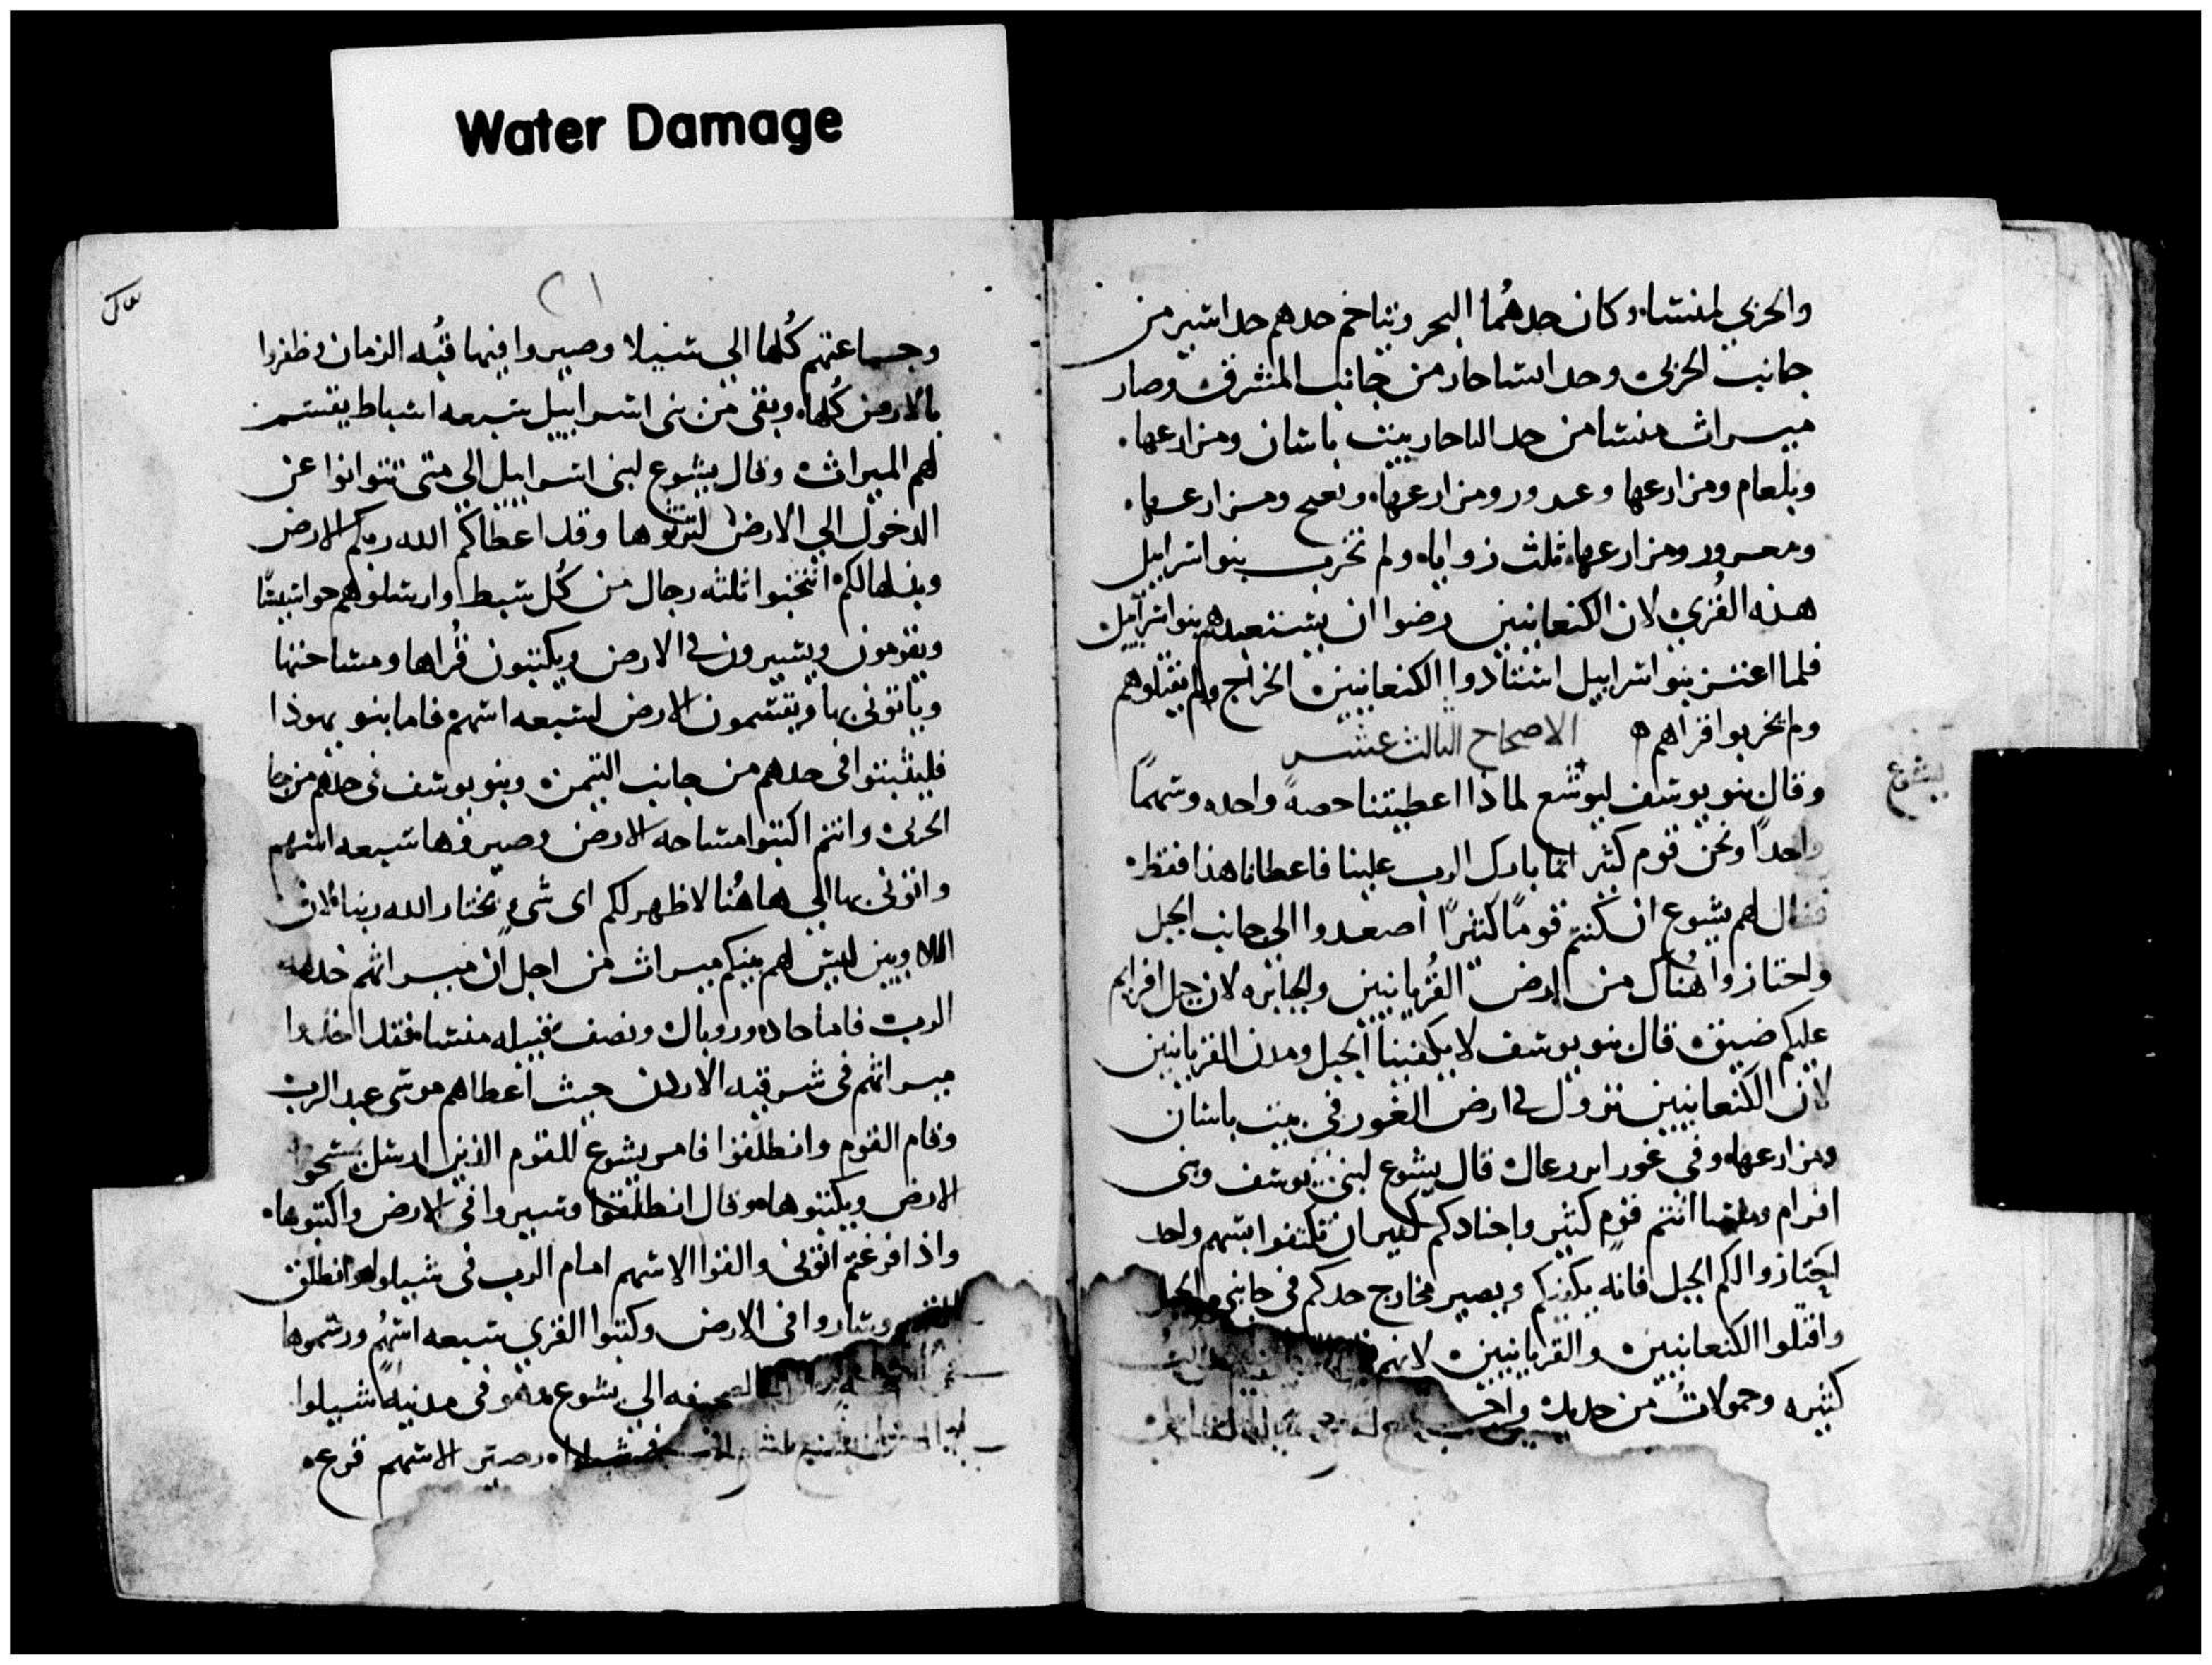 Water Damage
والحربي لمنشا وكان حدهُما البحر ويتاخم حدهم حد اشير من
جانب الحربى وحد اساحار من جانب المشرق وصار
ميراث منشا من حد الناحار بيت باشان ومزارعها
وبلعام ومزارعها وعدور ومزارعها ونعيح ومزارعها
ومعرور ومزارعها ثلث زوايا ولم تخرب بنو اسراييل
هذه القُرى لان الكنعانيين رضوا ان يستعبدهم بنو اسراييل
فلما اعتز بنو اسراييل استادوا الكنعانيين الخراج ولم يقتلوهم
ولم يخربوا قراهم الاصحاح الثالث عشر
يشوع
وقال بنو يوسف ليوشع لماذا اعطيتنا حصةً واحده وسهمًا
واحدًا ونحن قوم كثير انما بارك الرب علينا فاعطانا هذا فقط
فقال لهم يشوع ان كنتم قومًا كثيرًا أصعدوا الى جانب الجبل
واختازوا هُناك من ارض القُربانيين والجبابره لان جبل افرايم
عليكم ضيق قال بنو يوسف لا يكفينا الجبل ومدن القربانيين
لان الكنعانيين نزول في ارض الغور في بيت باشان
ومزارعها وفي غور ايررعال قال يشوع لبنى يوسف وبنى
افرام ومنشا انتم قوم كثير واجنادكم كثير ان تكتفوا بسهم واحد
اختازوا لكم الجبل فانه يكفيكم ويصير مخارج حدكم في جانبى الجبل
واقتلوا الكنعانيين والقربانيين لانهم
كثيره وحمولات من حديد
٢١
وجماعتهم كُلها الي شيلا وصيروا فيها قبُه الزمان وظفروا
بالارض كُلها وبقى من بنى اسراييل سبعه اسباط يقتسم
لهم الميراث وقال يشوع لبنى اسراييل الي متى تتوانوا عن
الدخول الي الارض لترثوها وقد اعطاكم الله ربكم الارض
وبذلها لكم انتخبوا ثلثه رجال من كُل سبط وارسلوهم جواسيسًا
ويقومون ويسيرون في الارض ويكتبون قُراها ومساحتها
وياتونى بها ويقتسمون الارض لسبعه اسهم فاما بنو يهوذا
فليثبتوا في حدهم من جانب التيمن وبنو يوسف في حدهم من جا
الحربى وانتم اكتبوا مساحه الارض وصيروها سبعه اسهم
واتونى بها الي هاهُنا لاظهر لكم اى شىءٍ يختار الله ربنا لان
اللاويين ليس لهم بينكم ميراث من اجل ان ميراثهم خدمه
الرب فاما جاد وروبال ونصف قبيله منشا فقد اخذوا
ميراثهم في شرقيه الاردن حيث اعطاهم موسى عبد الرب
وقام القوم وانطلقوا فامر يشوع للقوم الذين ارسل يمسحوا
الارض ويكتبوها وقال انطلقوا وسيروا في الارض واكتبوها
واذا فرغتم اتونى والقوا الاسهم امام الرب في شيلوا وانطلق
القوم وساروا في الارض وكتبوا القرى سبعه اسهُم ورسموها
الصحيفه الي يشوع وهو في مدينه شيلوا
وصير الاسهم قرعه